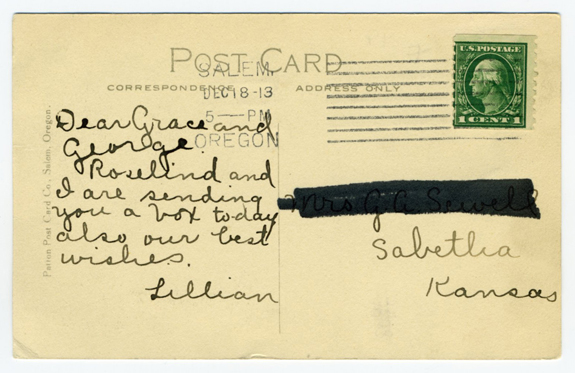 POST CARD
CORRESPONDENCE
ADDRESS ONLY
SALEM,
DEC 18-13
5 — PM
OREGON
U.S. POSTAGE
1 CENT 1
Patton Post Card Co. Salem, Oregon.
Dear Grace and
George.
Roselind and
I are sending
you a box today
also our best
wishes.
Lillian
Mrs G A Sewell
Sabetha
Kansas